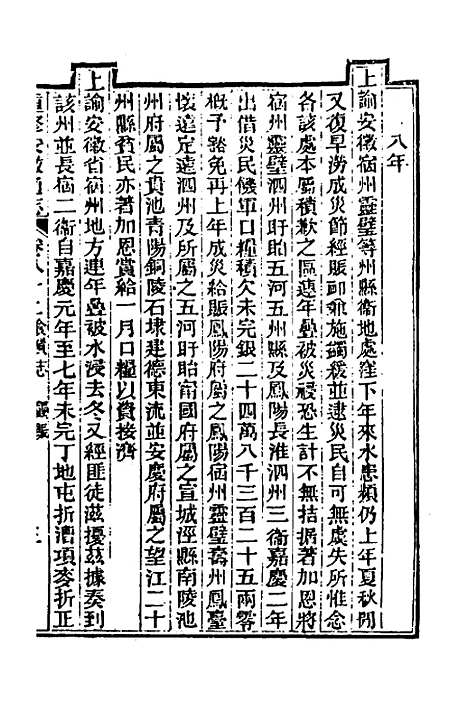 八年
上諭安徽宿州靈璧等州縣衛地處窪下年來水患頻仍上年夏秋閒
又復旱澇成災節經賑卹兼施蠲緩並逮災民自可無虞失所惟念
各該處本屬積歉之區連年疊被災祲恐生計不無拮据著加恩將
宿州靈璧泗州盱眙五河五州縣及鳳陽長淮泗州三衛嘉慶二年
出借災民倭軍口糧積欠未完銀二十四萬八千三百二十五兩零
概予豁免再上年成災給賑鳳陽府屬之鳳陽宿州靈璧壽州鳳臺
懷遠定遠泗州及所屬之五河盱眙甯國府屬之宣城涇縣南陵池
州府屬之貴池青陽銅陵石埭建德東流並安慶府屬之望江二十
州縣貧民亦著加恩賞給一月口糧以資接濟
上諭安徽省宿州地方連年疊被水浸去冬又經匪徒滋擾茲據奏到
該州並長宿二衛自嘉慶元年至七年未完丁地屯折漕項麥折正
重修安徽通志 卷八十 食貨志 蠲賑 三